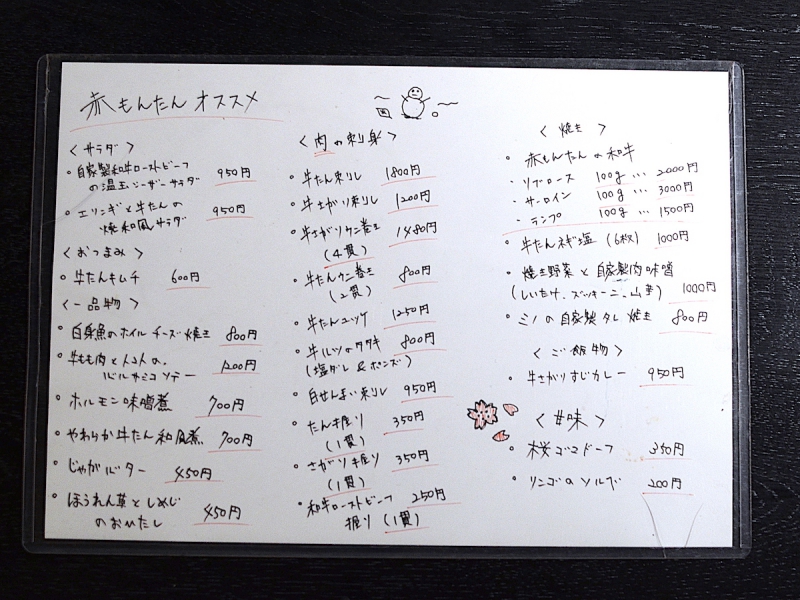 赤もんたん オススメ
<サラダ>
・自家製和牛ローストビーフ
の温玉シーザーサラダ 950円
・エリンギと牛たんの
焼和風サラダ 950円
<おつまみ>
・牛たんキムチ 600円
<一品物>
・白身魚のホイルチーズ焼き 800円
・牛もも肉と
バルサミコソテー 1200円
・ホルモン味噌煮 700円
・やわらか牛たん和風煮 700円
・じゃがバター 450円
・ほうれん草としめじ
のおひたし 450円
<肉の刺身>
・牛たん刺し 1800円
・牛さがり刺し 1200円
・牛さがりウニ巻き 1480円
(4貫)
・牛たんウニ巻き 800円
(2貫)
・牛たんユッケ 1250円
・牛ハツのタタキ 800円
(塩ダレ&ポンズ)
・白せんまい刺し 950円
・たん握り 350円
(1貫)
・さがり握り 350円
(1貫)
・和牛ローストビーフ 250円
握り(1貫)
<焼き>
・赤もんたんの和牛
・リブロース 100g… 2000円
・サーロイン 100g… 3000円
・ランプ 100g… 1500円
・牛たんネギ塩(6枚) 1000円
・焼き野菜と自家製肉味噌
(しいたけ、ズッキーニ、山芋) 1000円
・ミノの自家製タレ焼き 800円
<ご飯物>
・牛さがりすじカレー 950円
<甘味>
・桜ゴマドーフ 350円
・リンゴのソルブ 200円